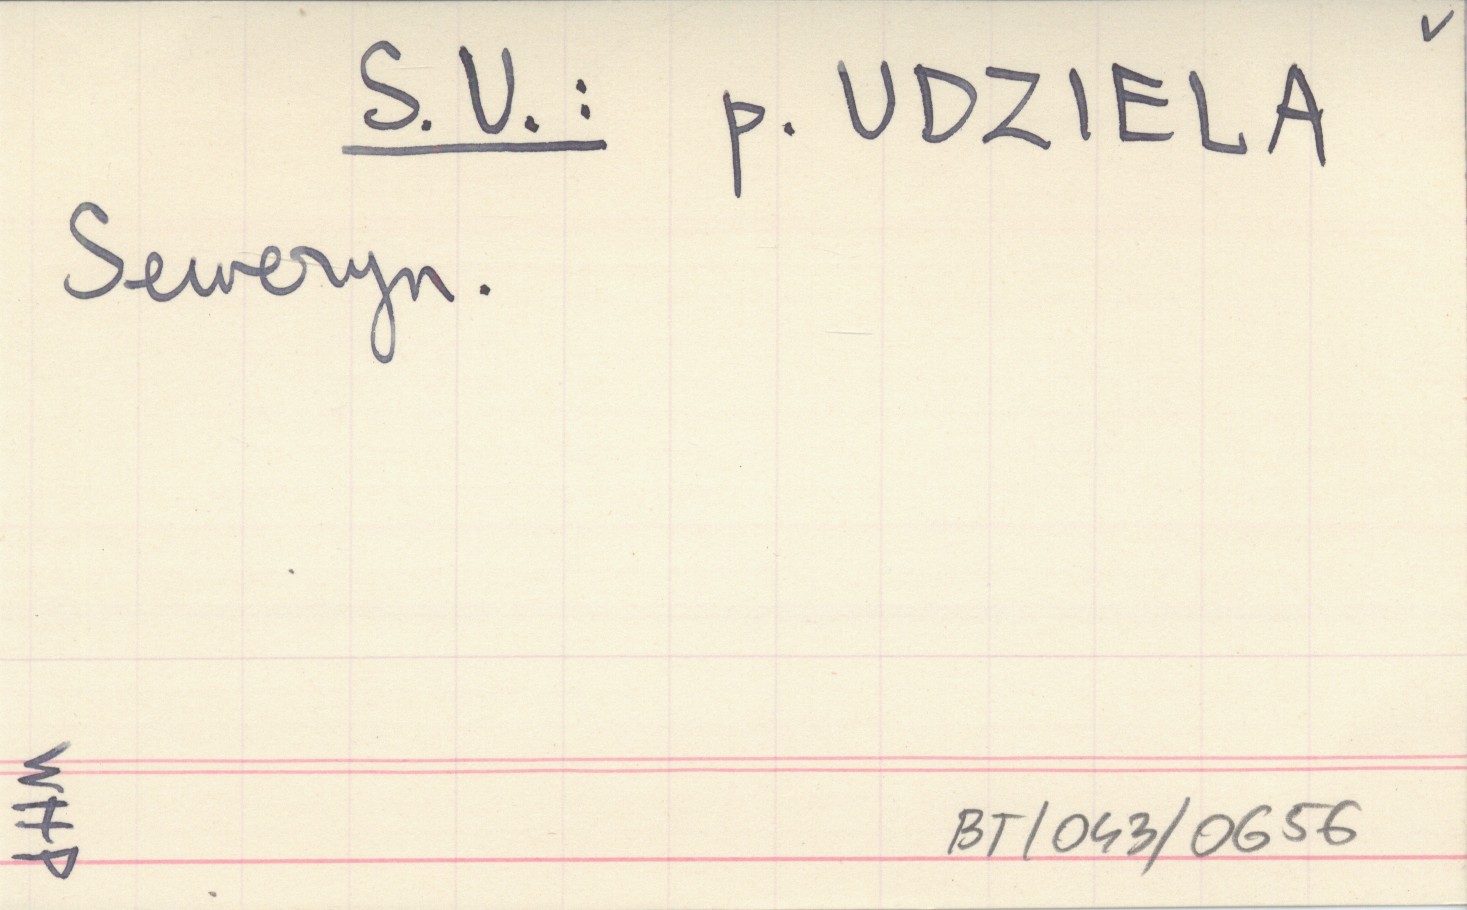 S.U.: p. UDZIELA
Seweryn.
WHP
BT/043/0656